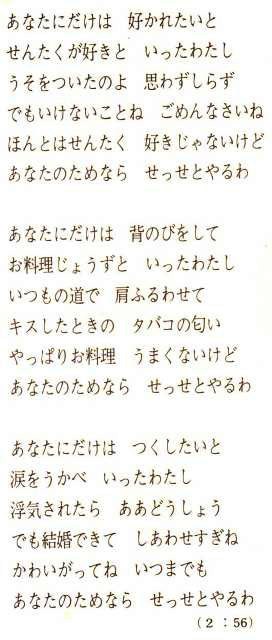 あなたにだけは　好かれたいと
せんたくが好きと　いったわたし
うそをついたのよ　思わずしらず
でもいけないことね　ごめんなさいね
ほんとはせんたく　好きじゃないけど
あなたのためなら　せっせとやるわ

あなたにだけは　背のびをして
お料理じょうずと　いったわたし
いつもの道で　肩ふるわせて
キスしたときの　タバコの匂い
やっぱりお料理　うまくないけど
あなたのためなら　せっせとやるわ

あなたにだけは　つくしたいと
涙をうかべ　いったわたし
浮気されたら　ああどうしょう
でも結婚できて　しあわせすぎね
かわいがってね　いつまでも
あなたのためなら　せっせとやるわ
（２：56）